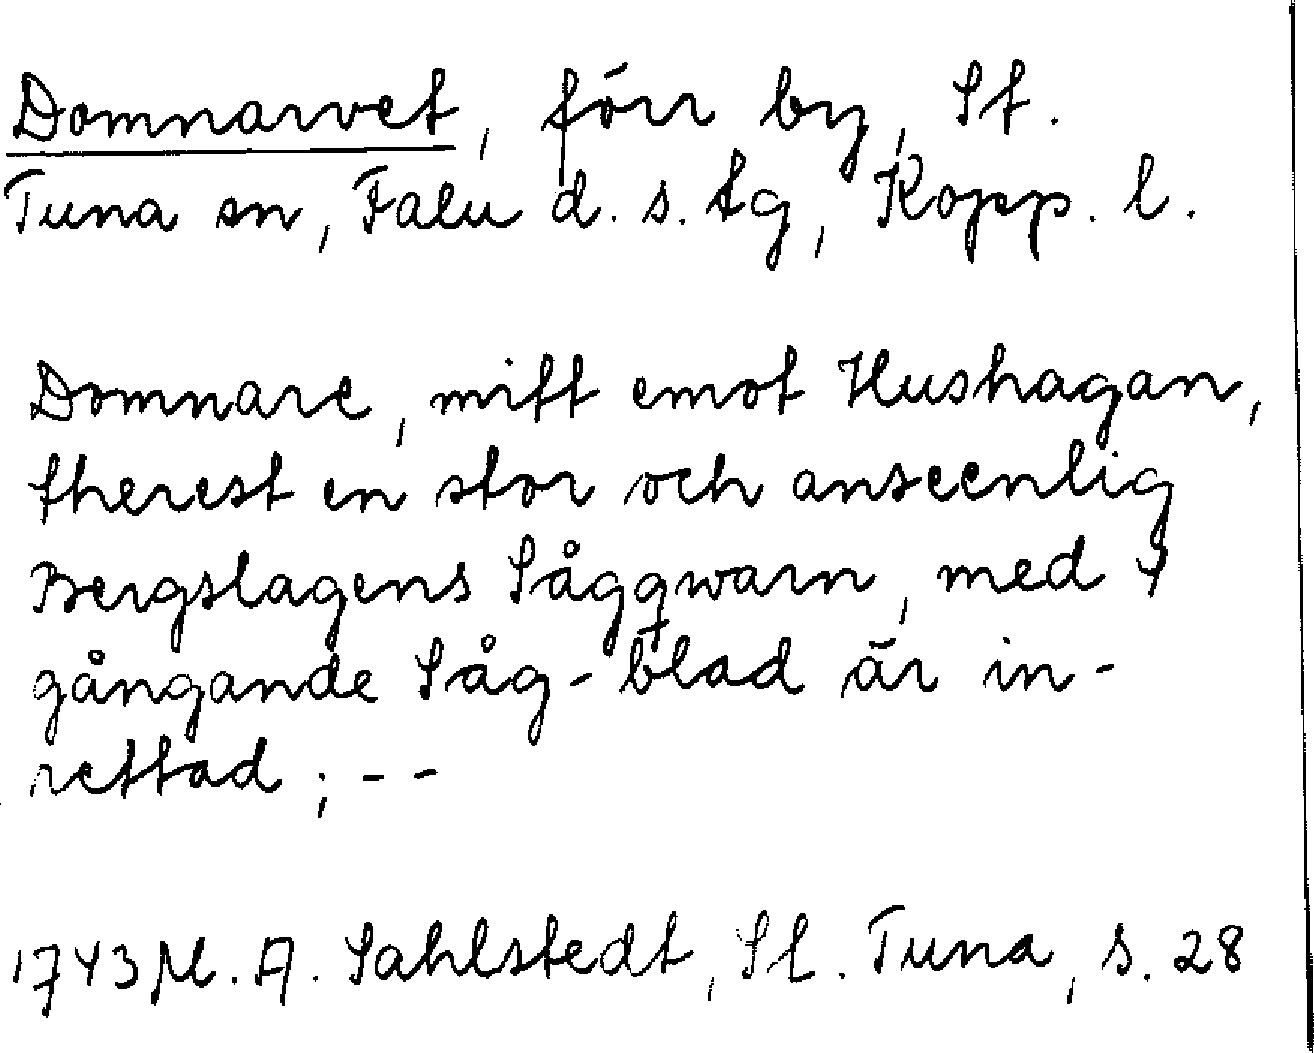 Domnarvet, förr by, St.
Tuna sn, Falu d. s. tg, Kopp. l.
Domnare, mitt emot Hushagan,
therest en stor och anseenlig
Bergslagens Sågqwarn, med 4
gångande Såg-blad är in-
rettad ; - -
1743 M. A. Sahlstedt, St. Tuna, s. 28